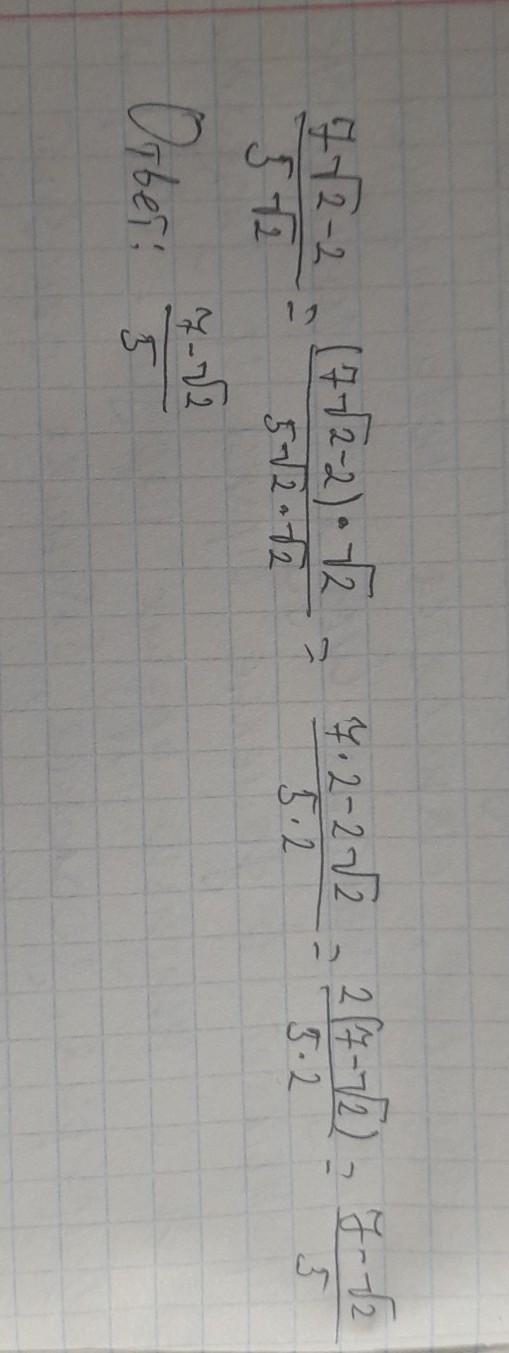 (7√2-2)/(5√2) = ((7√2-2)·√2)/(5√2·√2) = (7·2-2√2)/(5·2) = (2(7-√2))/(5·2) = (7-√2)/5
Ответ: (7-√2)/5